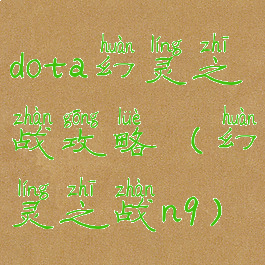 huàn líng zhī
dota幻灵之
zhàn gōng lüè huàn
战攻略(幻
líng zhī zhàn
灵之战n9)